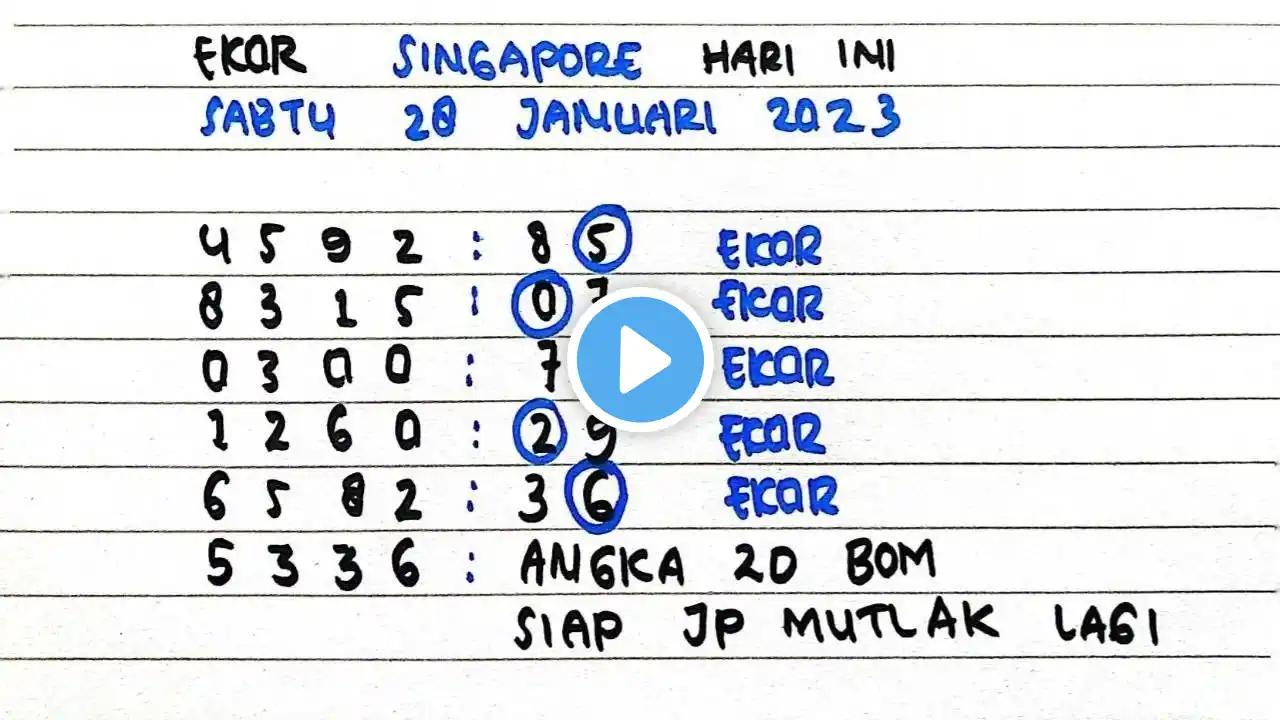 EKOR SINGAPORE HARI INI
SABTU 28 JANUARI 2023
4 5 9 2 : 8 5 EKOR
8 3 1 5 : 0 EKOR
0 3 0 0 : 7 EKOR
1 2 6 0 : 2 9 EKOR
6 5 8 2 : 3 6 EKOR
5 3 3 6 : ANGKA 2D BOM
SIAP JP MUTLAK LAGI